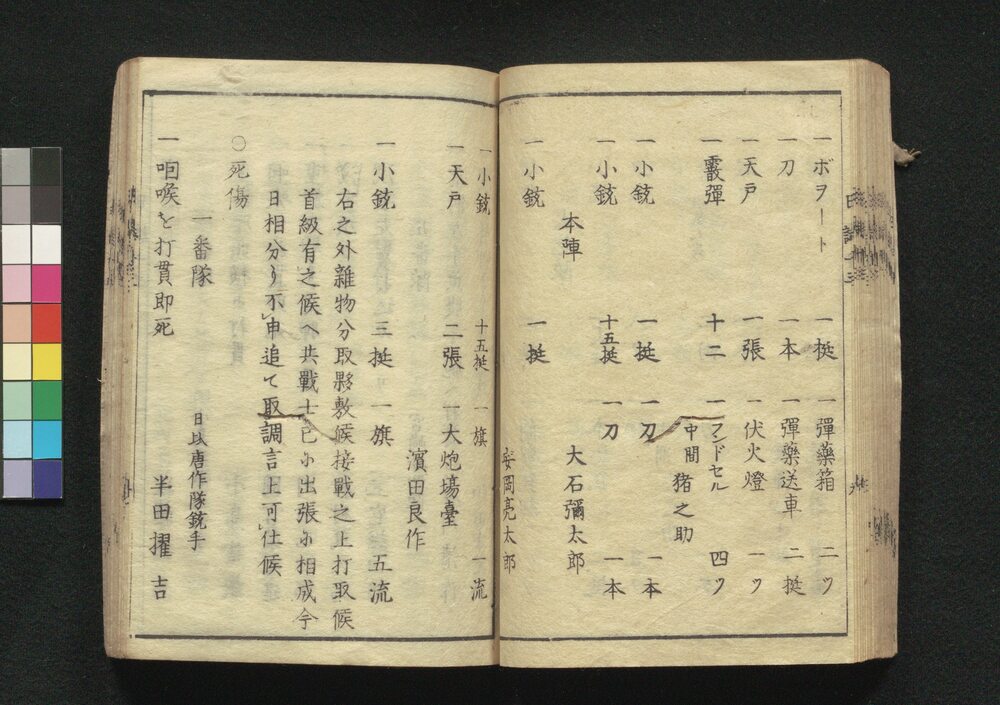 一ボヲート 一挺 一彈藥箱 二ツ
一刀 一本 一彈藥送車 二挺
一天戸 一張 一伏火燈 一ツ
一霰彈 十二 一ランドセル 四ツ
中間 猪之助
一小銃 一挺 一刀 一本
一小銃 十五挺 一刀 一本
本陣 大石彌太郎
一小銃 一挺
安岡亮太郎
一小銃 十五挺 一旗 一流
一天戸 二張 一大炮場臺
濱田良作
一小銃 三挺 一旗 五流
右之外雜物分取夥敷候接戰之上打取候
首級有之候ヘ共戰士已ニ出張ニ相成今
日相分リ不申追て取調言上可仕候
○死傷
一番隊
日比唐作隊銃手
一咽喉を打貫即死 半田擢吉